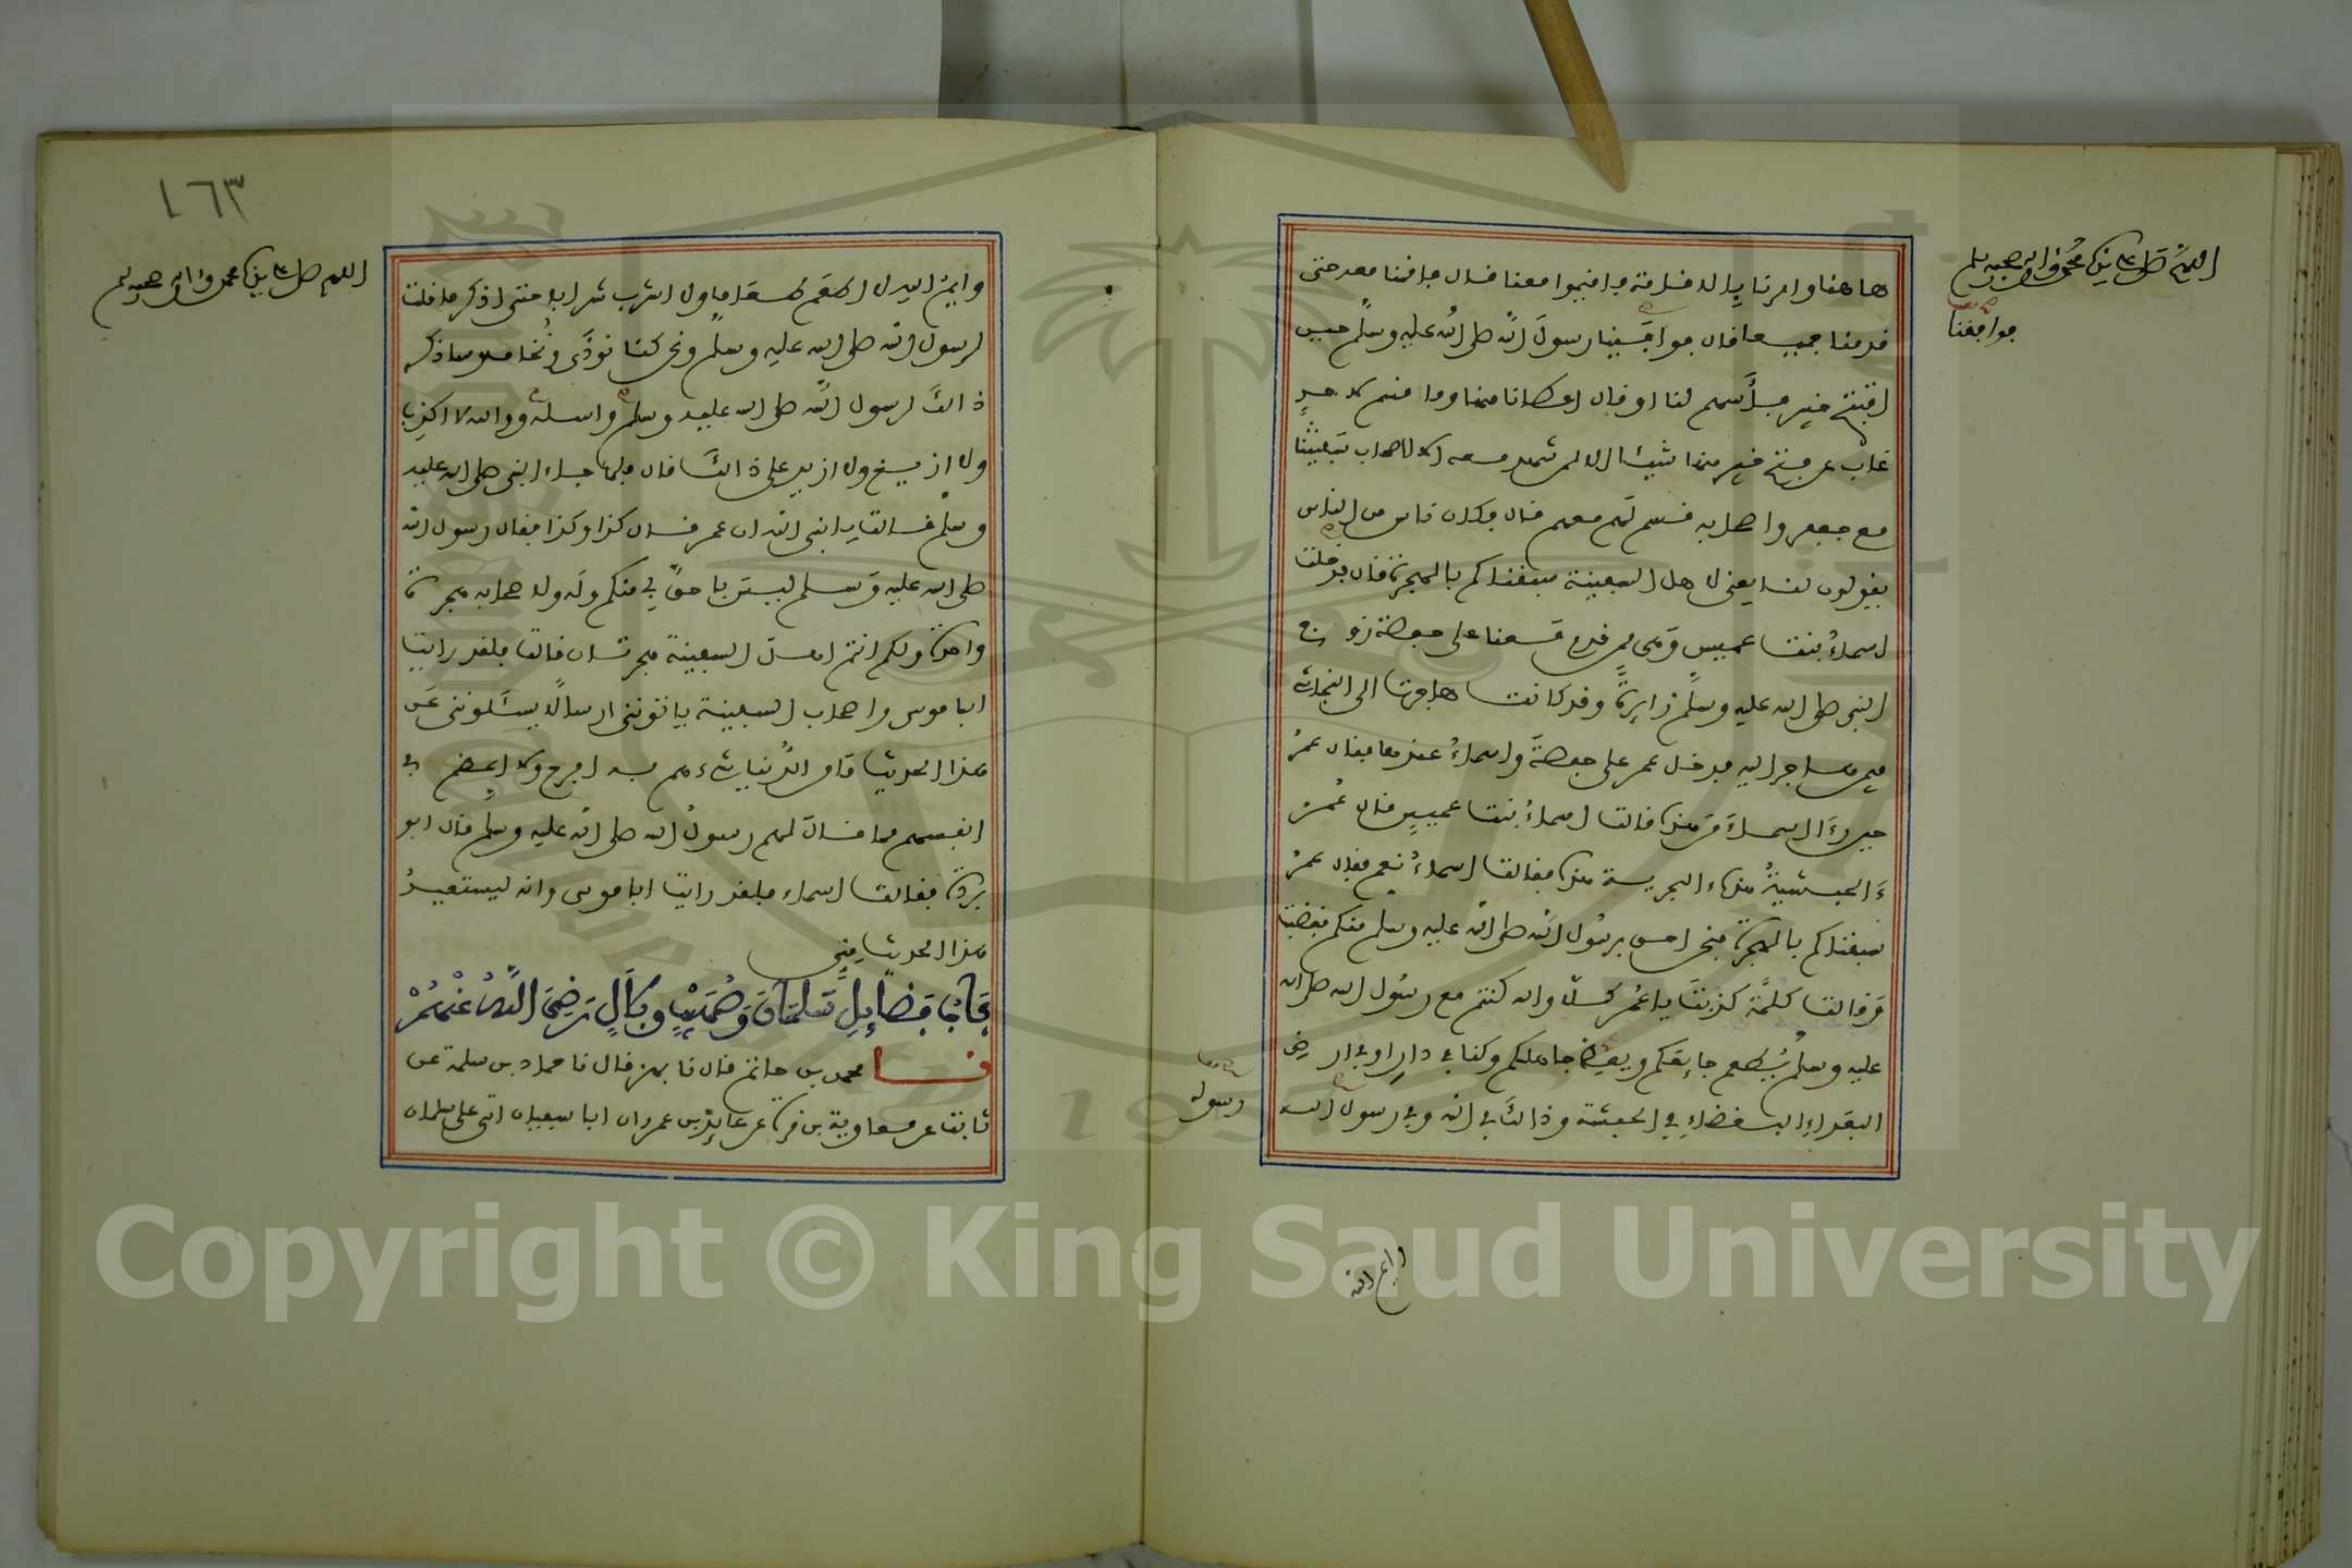 اللهم صل على نبينا محمد واله وصحبه وسلم
فوافقنا
هاهنا وامرنا بالاقامة فاقيموا معنا قال فاقمنا معه حتى
قدمنا جميعا قال فوافينا رسول الله صلى الله عليه وسلم حين
افتتح خيبر فاسهم لنا او قال اعطانا منها وما قسم لاحد
غاب عن فتح خيبر منها شيئا الا لمن شهد معه الا لاصحاب سفينتنا
مع جعفر واصحابه قسم لهم معهم قال فكان ناس من الناس
يقولون لنا يعني لاهل السفينة سبقناكم بالهجرة قال فدخلت
اسماء بنت عميس وهي ممن قدم معنا على حفصة زوج
النبي صلى الله عليه وسلم زايرة وقد كانت هاجرت الى النجاشي
فيمن هاجر اليه فدخل عمر على حفصة واسماء عندها فقال عمر
حين راى اسماء من هذه قالت اسماء بنت عميس قال عمر
ءالحبشية هذه ءالبحرية هذه فقالت اسماء نعم فقال عمر
سبقناكم بالهجرة فنحن احق برسول الله صلى الله عليه وسلم منكم فغضبت
وقالت كلمة كذبت يا عمر كلا والله كنتم مع رسول الله صلى الله
عليه وسلم يطعم جايعكم ويعظ جاهلكم وكنا في دار او في ارض
البعداء البغضاء في الحبشة وذالك في الله وفي رسول الله
رسوله
وايم الله
١٦٣
اللهم صل على نبينا محمد واله وصحبه وسلم
وايم الله لا اطعم طعاما ولا اشرب شرابا حتى اذكر ما قلت
لرسول الله صلى الله عليه وسلم ونحن كنا نوذى ونخاف وساذكر
ذالك لرسول الله صلى الله عليه وسلم واسله ووالله لا اكذب
ولا ازيغ ولا ازيد على ذالك قال فلما جاء النبي صلى الله عليه
وسلم قالت يا نبي الله ان عمر قال كذا وكذا فقال رسول الله
صلى الله عليه وسلم ليس باحق بي منكم وله ولاصحابه هجرة
واحدة ولكم انتم اهل السفينة هجرتان قالت فلقد رايت
ابا موسى واصحاب السفينة ياتونني ارسالا يسئلونني عن
هذا الحديث ما من الدنيا شيء هم به افرح ولا اعظم في
انفسهم مما قال لهم رسول الله صلى الله عليه وسلم قال ابو
بردة فقالت اسماء فلقد رايت ابا موسى وانه ليستعيد
هذا الحديث مني
باب فضايل سلمان وصهيب وبلال رضي الله عنهم
نا محمد بن حاتم قال نا بهز قال نا حماد بن سلمة عن
ثابت عن معاوية بن قرة عن عايذ بن عمرو ان ابا سفيان اتى على سلمان
Copyright © King Saud University